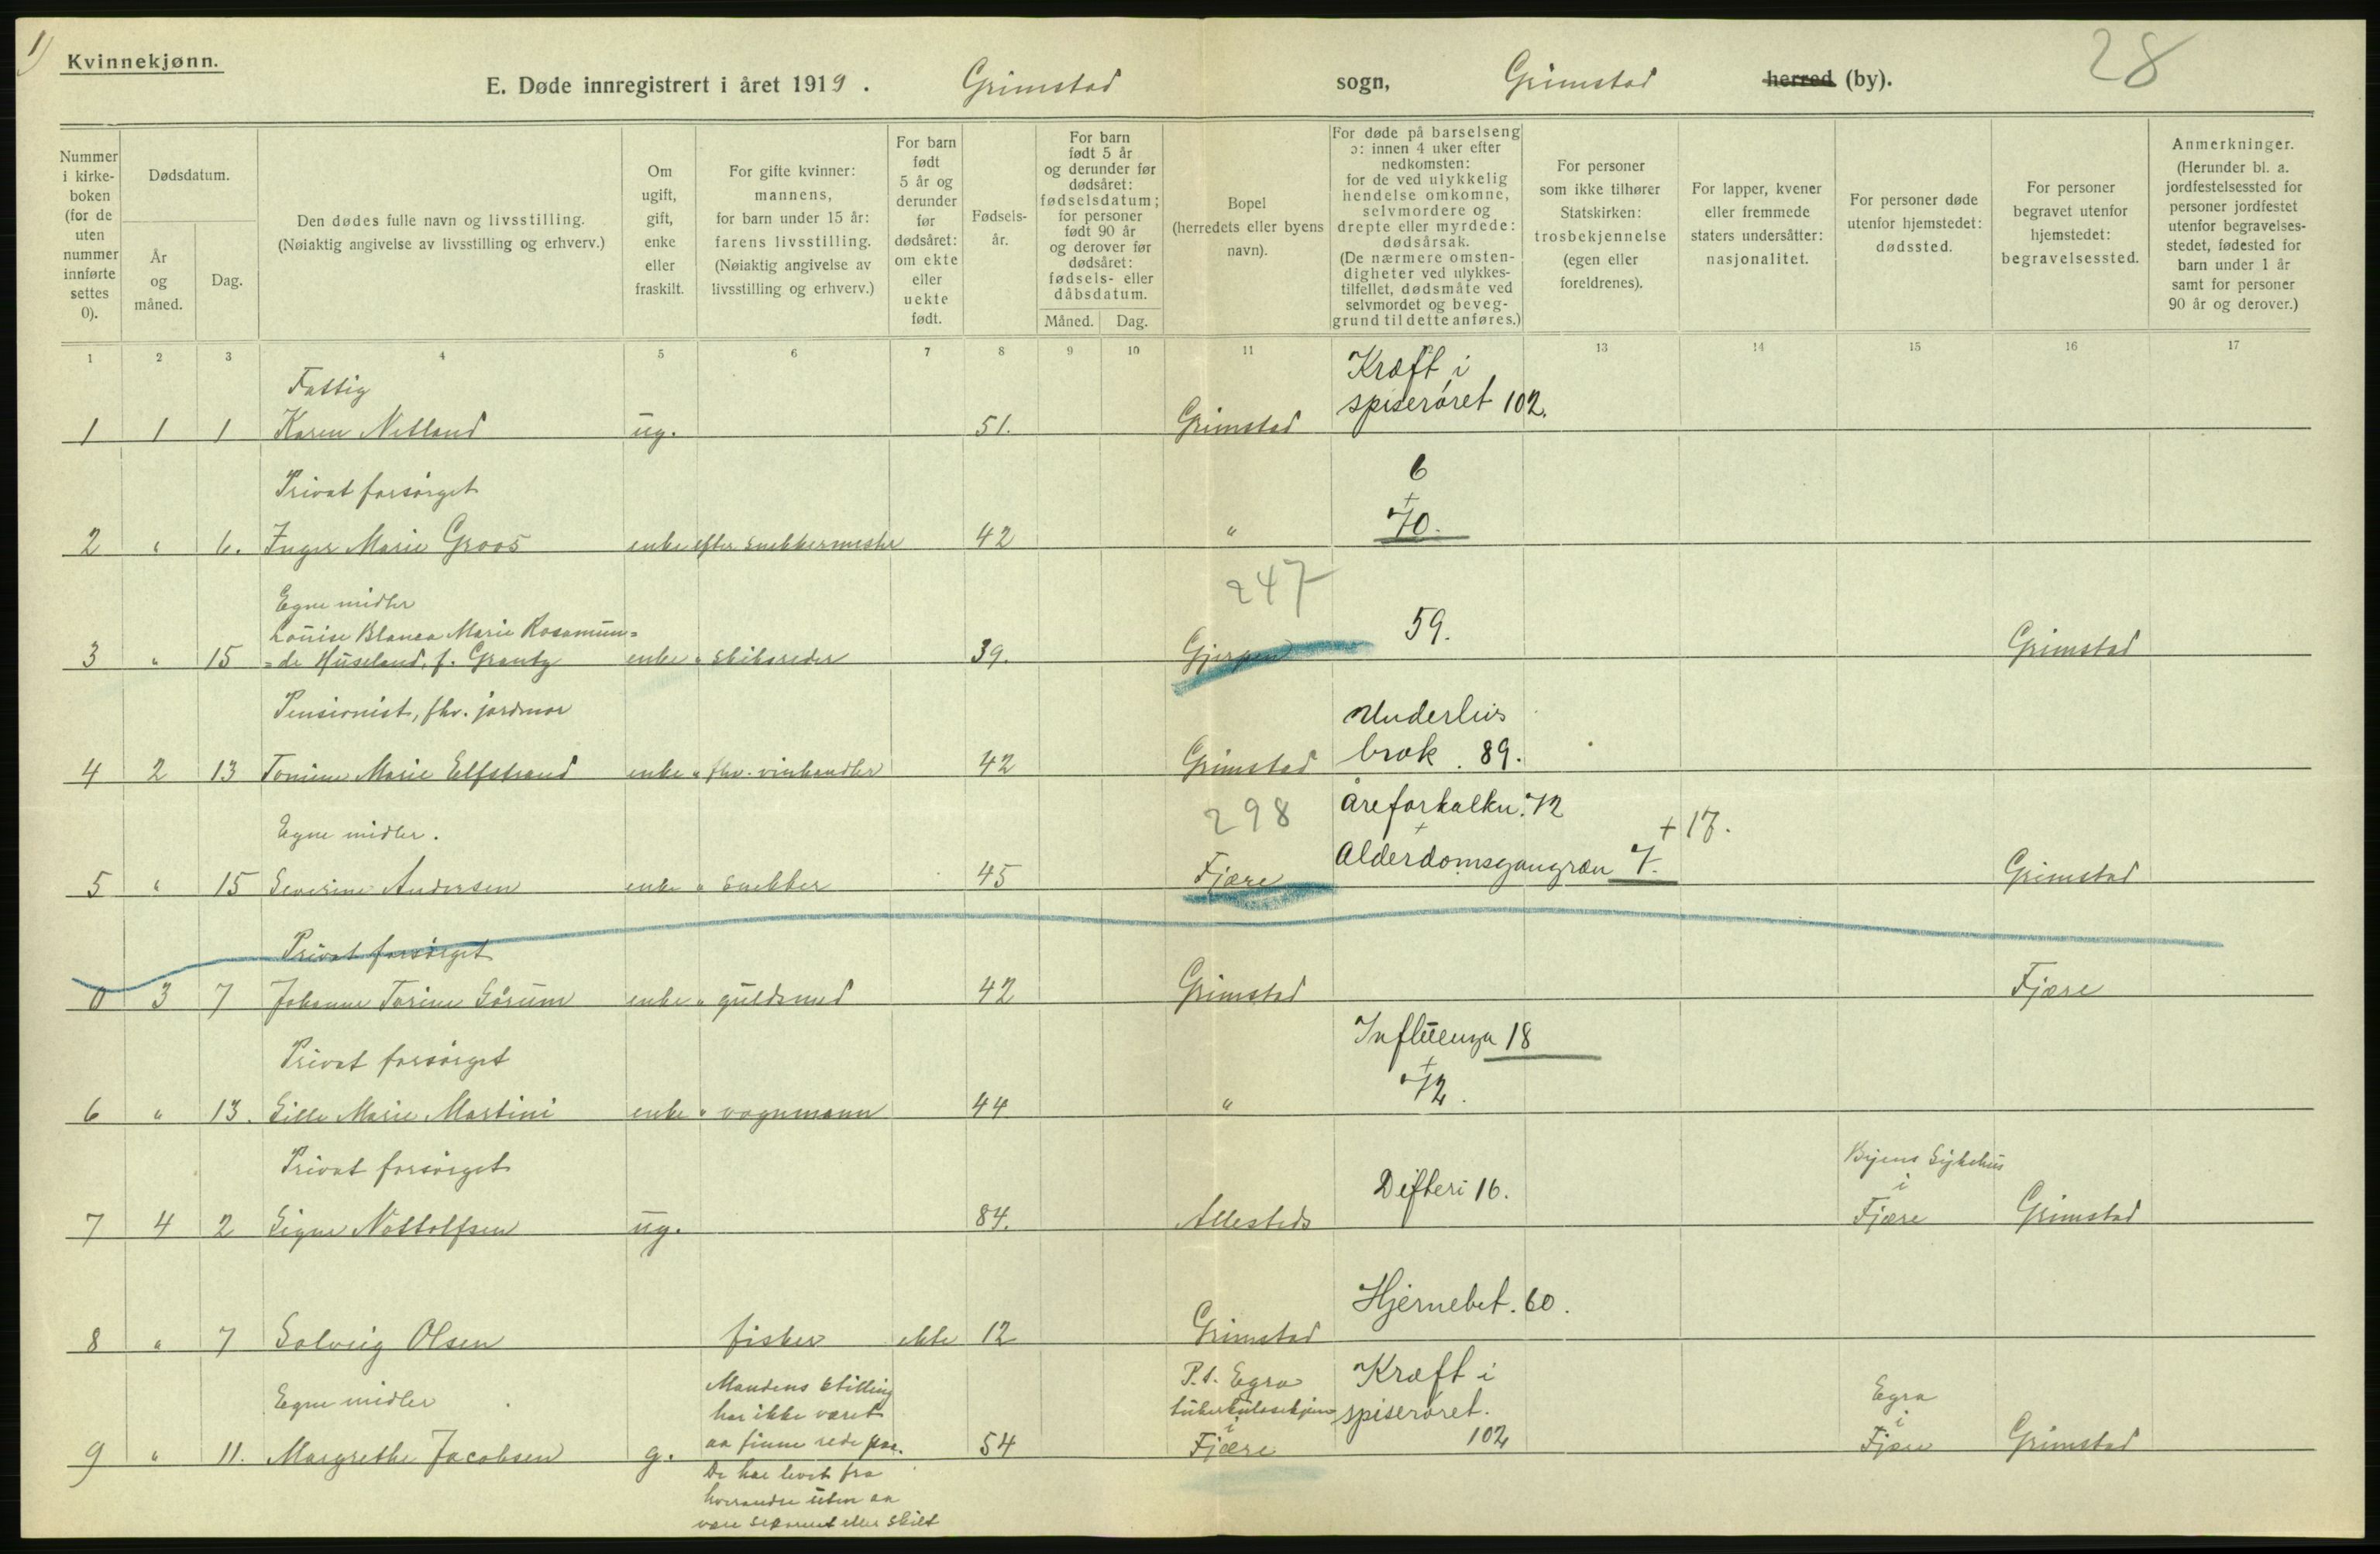 1)
Kvinnekjønn.
E. Døde innregistrert i året 1919. Grimstad sogn, Grimstad herred (by).
28
Nummer i kirkeboken (for de uten nummer innførte settes 0).
Dødsdatum.
År og måned.
Dag.
Den dødes fulle navn og livsstilling.
(Nøiaktig angivelse av livsstilling og erhverv.)
Om ugift, gift, enke eller fraskilt.
For gifte kvinner: mannens, for barn under 15 år: farens livsstilling. (Nøiaktig angivelse av livsstilling og erhverv.)
For barn født 5 år og derunder før dødsåret: om ekte eller uekte født.
Fødselsår.
For barn født 5 år og derunder før dødsåret: fødselsdatum; for personer født 90 år og derover før dødsåret: fødsels- eller dåbsdatum.
Måned. Dag.
Bopel (herredets eller byens navn).
For døde på barselseng ɔ: innen 4 uker efter nedkomsten: for de ved ulykkelig hendelse omkomne, selvmordere og drepte eller myrdede: dødsårsak. (De nærmere omstendigheter ved ulykkestilfellet, dødsmåte ved selvmordet og beveggrund til dette anføres.)
For personer som ikke tilhører Statskirken: trosbekjennelse (egen eller foreldrenes).
For lapper, kvener eller fremmede staters undersåtter: nasjonalitet.
For personer døde utenfor hjemstedet: dødssted.
For personer begravet utenfor hjemstedet: begravelsessted.
Anmerkninger. (Herunder bl. a. jordfestelsessted for personer jordfestet utenfor begravelsesstedet, fødested for barn under 1 år samt for personer 90 år og derover.)
1 2 3 4 5 6 7 8 9 10 11 13 14 15 16 17
Fattig Kræft i
spiserøret 102.
1 1 1 Karen Netland ug. 51. Grimstad
Privat forsørget 6
+
2 " 6. Inger Marie Groos enke efter snekkermester 42 " 70.
Egne midler 247
Louise Blanca Marie Rosamun= 59.
3 " 15 =de Huseland, f. Grantz enke " skibsreder 39. Gjerpen Grimstad
Pensionist, fhv. jordmor Underlivs
4 2 13 Tomine Marie Elfstrand enke " fhv. vinhandler 42 Grimstad brok. 89.
Egne midler. 298 Åreforkalkn. 72
+ + 17.
5 " 15 Severine Andersen enke " snekker 45 Fjære Alderdomsgangræn 7. Grimstad
Privat forsørget
0 3 7 Johanne Torine Sørum enke " guldsmed 42 Grimstad Fjære
Privat forsørget Influenza 18
+
6 " 13. Sille Marie Martini enke " vognmann 44 " 72.
Privat forsørget Difteri 16. Byens Sykehus
i
7 4 2 Signe Nottolfsen ug. 84. Allesteds Fjære Grimstad
Hjernebet. 60.
8 " 7 Solveig Olsen fisker ekte 12 Grimstad
Egne midler Mandens stilling P.t. Egra Kræft i Egra
har ikke været tuberkulosehjem spiserøret. i
i
9 " 11. Margrethe Jacobsen g. aa finne rede paa. 54 Fjære 102 Fjære Grimstad
De har levet fra
hverandre uten aa
være separert eller skilt